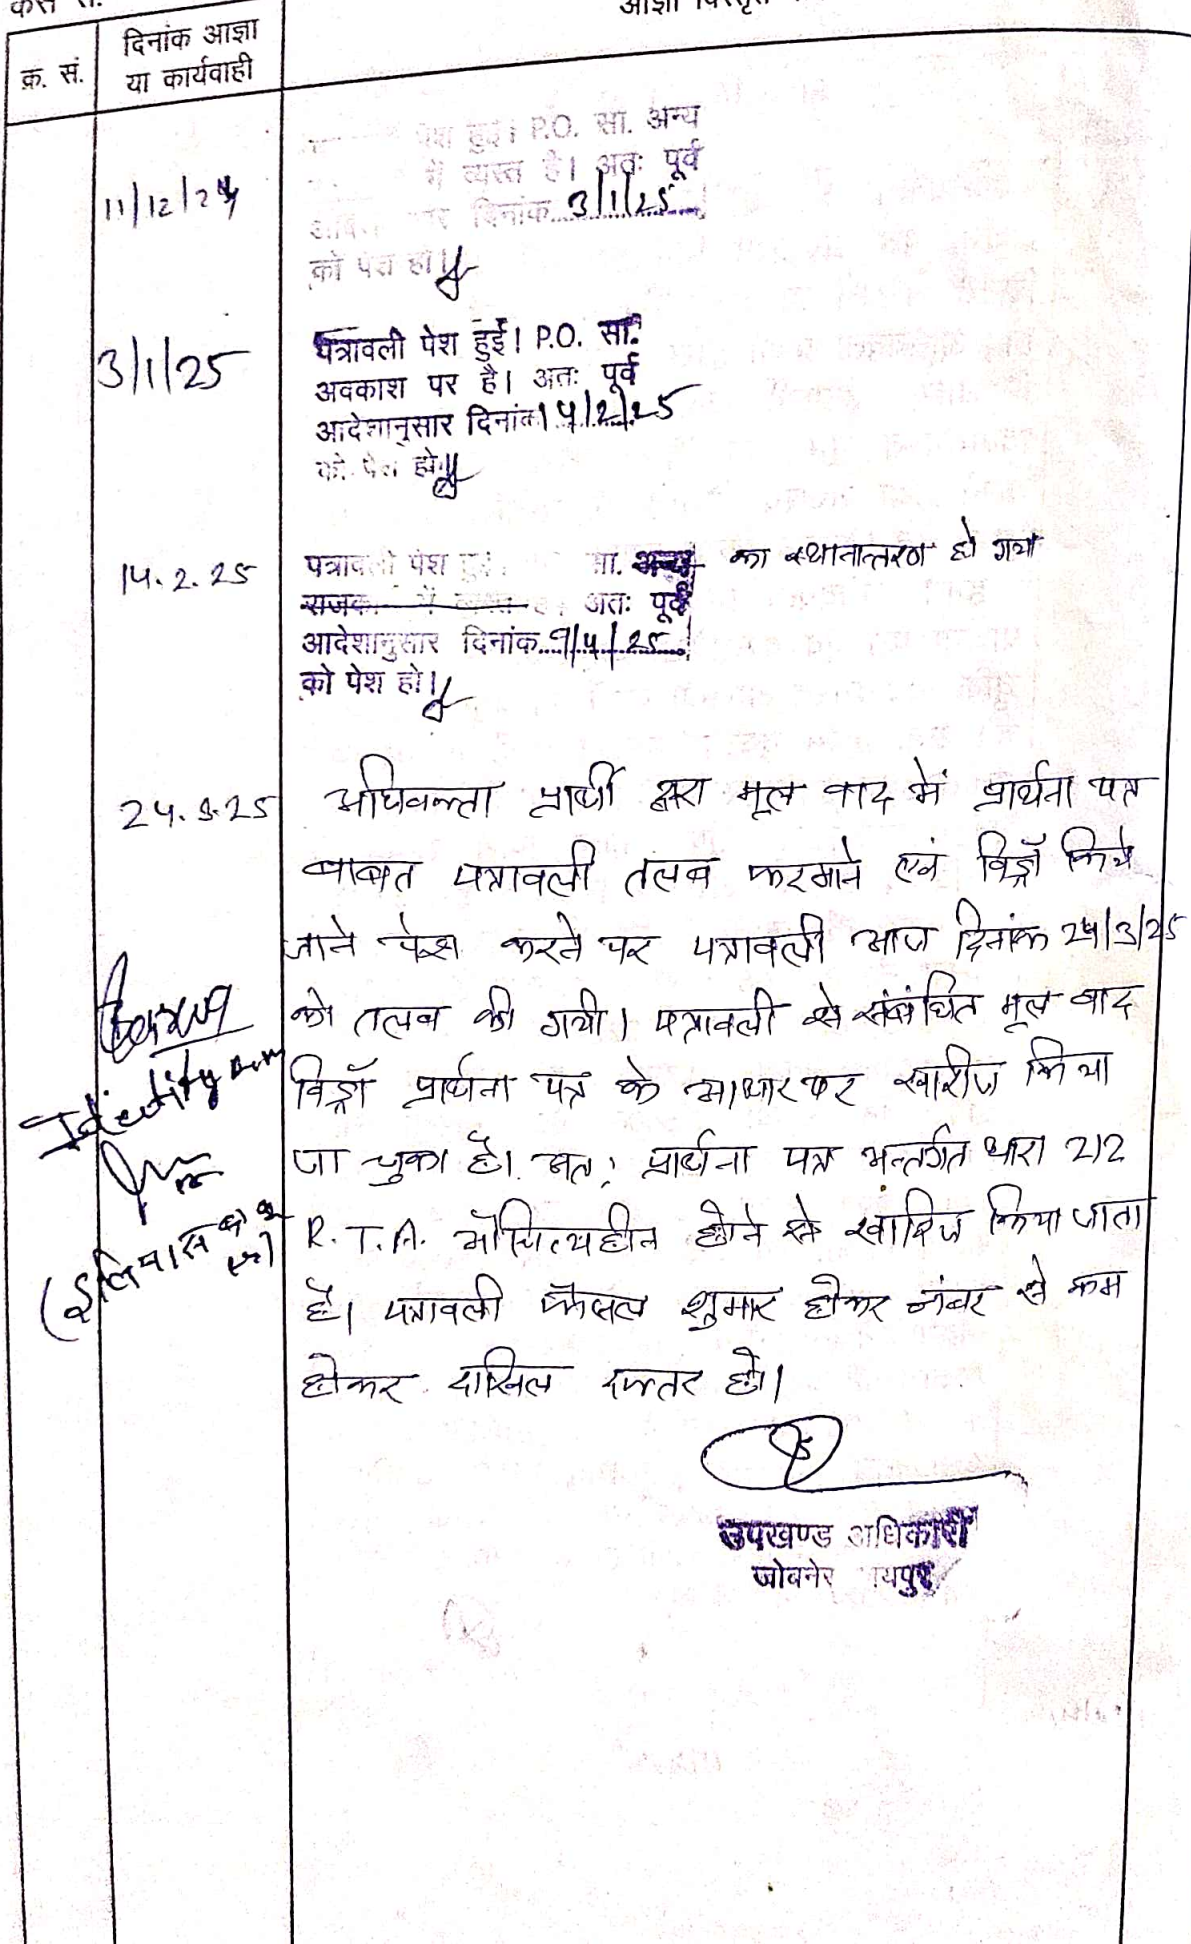 केस सं.
आज्ञा विस्तृत
क्र. सं.
दिनांक आज्ञा
या कार्यवाही
11/12/24
पेश हुई। P.O. सा. अन्य
में व्यस्त है। अतः पूर्व
दिनांक 3/1/25
को पेश हो।
3/1/25
पत्रावली पेश हुई। P.O. सा.
अवकाश पर है। अतः पूर्व
आदेशानुसार दिनांक 14/2/25
को पेश हो।
14.2.25
पत्रावली पेश हुई। सा. अन्य का स्थानान्तरण हो गया
राजक में व्यस्त है। अतः पूर्व
आदेशानुसार दिनांक 9/4/25
को पेश हो।
24.3.25
अधिवक्ता प्रार्थी द्वारा मूल वाद में प्रार्थना पत्र
बाबत पत्रावली तलब फरमाने एवं विड्रॉ किये
जाने पेश करने पर पत्रावली आज दिनांक 24/3/25
को तलब की गयी। पत्रावली से संबंधित मूल वाद
विड्रॉ प्रार्थना पत्र के आधार पर खारीज किया
जा चुका है। अत: प्रार्थना पत्र अन्तर्गत धारा 212
R.T.A. औचित्यहीन होने से खारिज किया जाता
है। पत्रावली फैसल शुमार होकर नंबर से कम
होकर दाखिल दफ्तर हो।
Identity
उपखण्ड अधिकारी
जोबनेर जयपुर